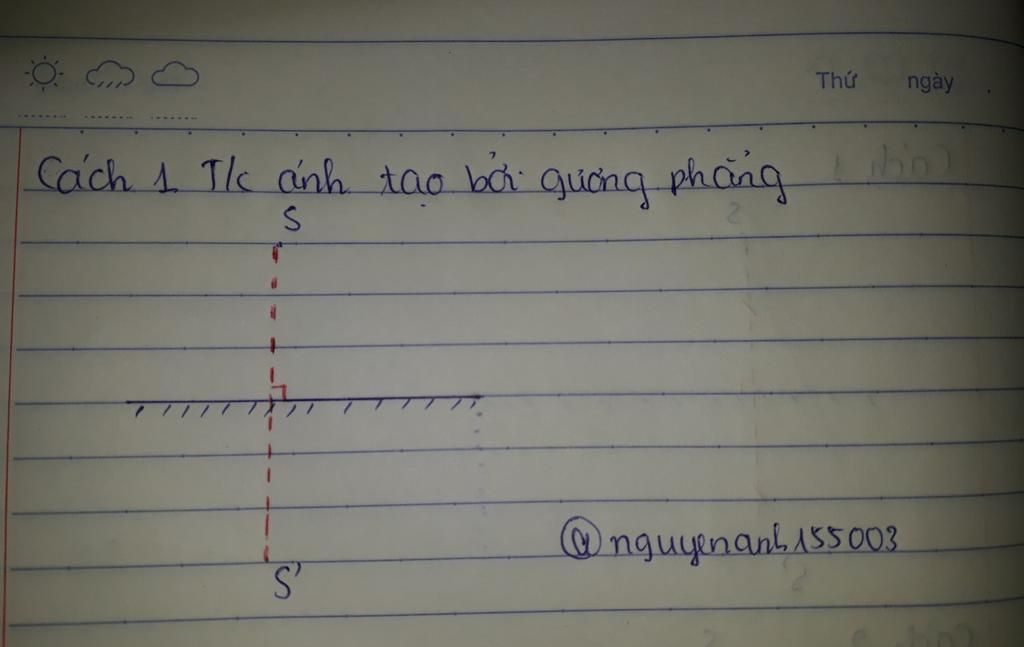 Thứ ngày
Cách 1 T/c ảnh tạo bởi gương phẳng
S
S'
@nguyenanh155003